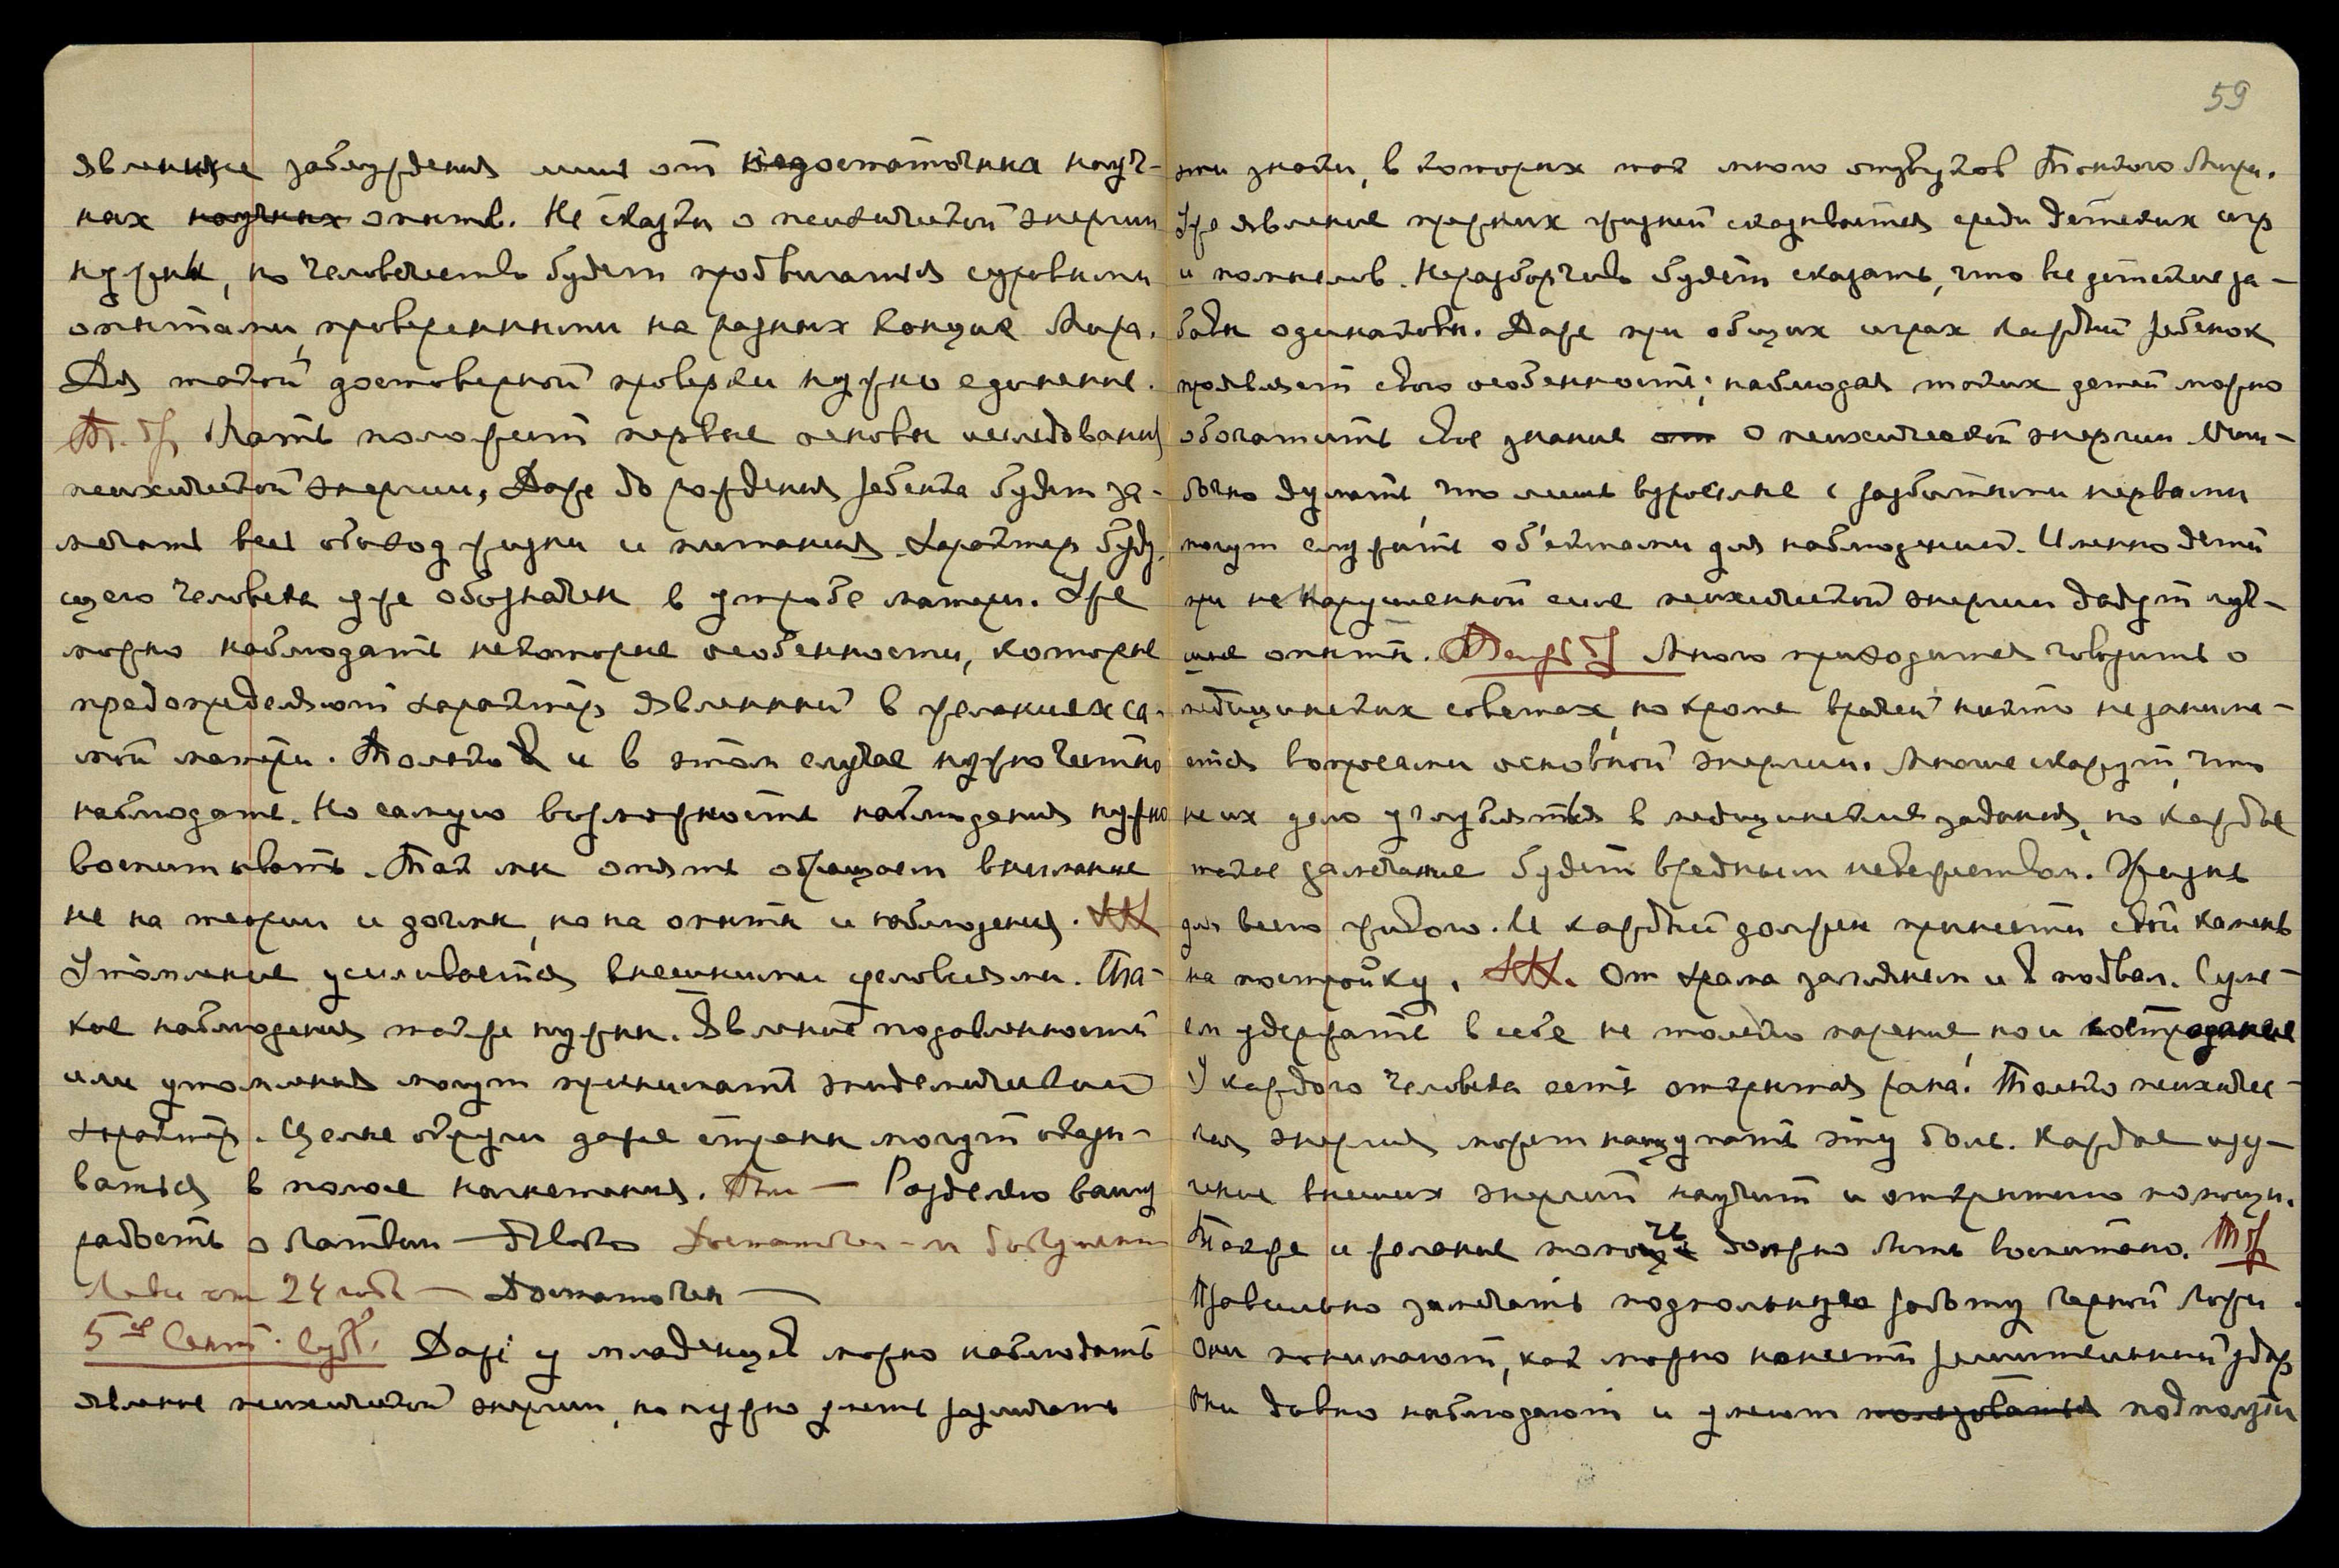 явленные заблуждения лишь от недостаточных науч-
ных научных опытов. Не сказки о психической энергии
нужны, но человечество будет продвигаться суровыми
опытами, проверенными на разных концах Мира.
Для такой достоверной проверки нужно единение.
Мать положит первые основы исследования
психической энергии, Даже до рождения ребенка будет за-
мечать весь обиход жизни и питания. Характер буду-
щего человека уже обозначен в утробе матери. Уже
можно наблюдать некоторые особенности, которые
предопределяют характер явленный в желаниях са-
мой матери. Только и в этом случае нужно честно
наблюдать. Но самую возможность наблюдения нужно
воспитывать. Так мы опять обращаем внимание
не на теории и догмы, но на опыты и наблюдения.
Утомление усиливается внешними условиями. Та-
кие наблюдения также нужны. Явление подавленности
или утомления могут принимать эпидемический
характер. Целые округи даже страны могут оказы-
ваться в полосе нагнетания. — Разделяю вашу
радость о Латвии —
24 — Достаточно —
5ое Сент. Суб. Даже у младенцев можно наблюдать
явление психической энергии, но нужно уметь различать
59
эти знаки, в которых так много отзвуков Тонкого Мира.
Уже явление прежних жизней сказывается среди детских игр
и помыслов. Неразборчиво будет сказать, что все детские за-
бавы одинаковы. Даже при общих играх каждый ребенок
проявляет свою особенность; наблюдая таких детей можно
обогатить свое знание от о психической энергии. Оши-
бочно думать, что лишь взрослые с разбитыми нервами
могут служить об'ектами для наблюдений. Именно дети
при не нарушенной силе психической энергии дадут луч-
шие опыты. Много приходится говорить о
медицинских советах, но кроме врачей никто не занима-
ется вопросами основной энергии. Многие скажут, что
не их дело углубляться в медицинские задания, но каждое
такое замечание будет вредным невежеством. Жизнь
для всего живого. И каждый должен принести свой камень
на постройку. От храма заглянем и в подвал. Суме-
ем удержать в себе не только парение но и сострадание
У каждого человека есть открытая рана. Только психичес-
кая энергия может нащупать эту боль. Каждое изу-
чение высших энергий научит и открытию помощи.
Также и желание помочь должно быть воспитано.
Правильно замечать подпольную работу черной ложи.
Они понимают, как можно нанести решительный удар
Они давно наблюдают и умеют пользоваться подползти